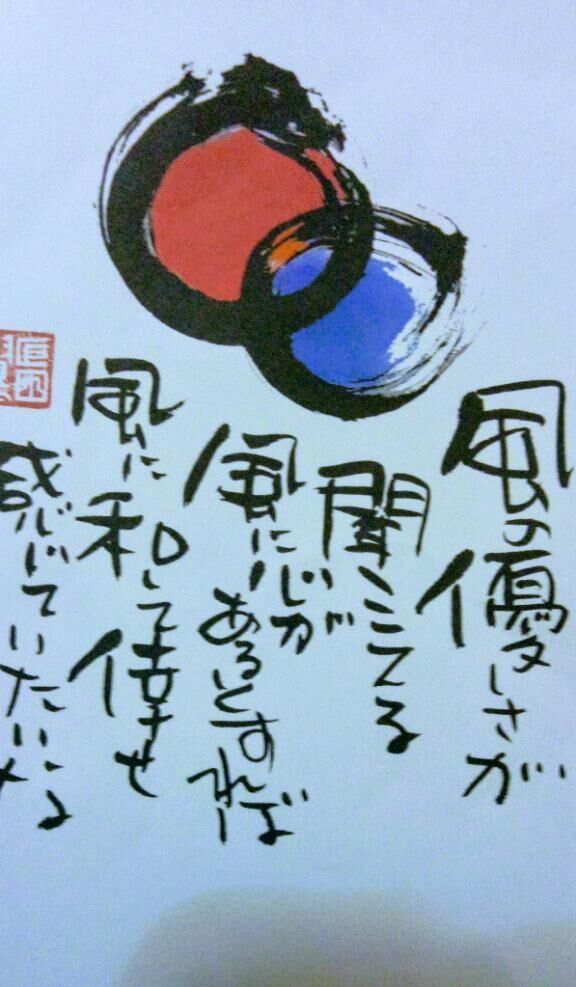 風の優しさが
聞こてる
風に心が
あるとすれば
風に和して倖せ
感じていたい